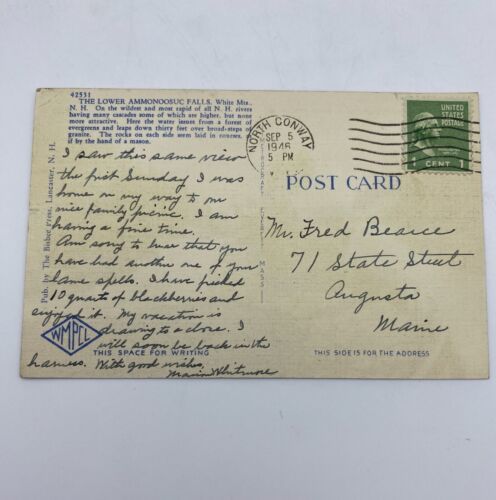 42531
THE LOWER AMMONOOSUC FALLS, White Mts.,
N. H. On the wildest and most rapid of all N. H. rivers
having many cascades some of which are higher, but none
more attractive. Here the water issues from a forest of
evergreens and leaps down thirty feet over broad steps of
granite. The rocks on each side seem laid in courses, as
if by the hand of a mason.
Pub. by The Bisbee Press, Lancaster, N. H.
I saw this same view
the first Sunday I was
home on my way to our
nice family picnic. I am
having a fine time.
Am sorry to hear that you
have had another one of your
lame spells. I have picked
10 quarts of blackberries and
enjoyed it. My vacation is
drawing to a close. I
will soon be back in the
harness. With good wishes,
Marion Whitmore
WMPCC
THIS SPACE FOR WRITING
NORTH CONWAY
SEP 5
5 PM
1946
UNITED
STATES
POSTAGE
1 CENT 1
POST CARD
Mr. Fred Bearce
71 State Street
Augusta
Maine
THIS SIDE IS FOR THE ADDRESS